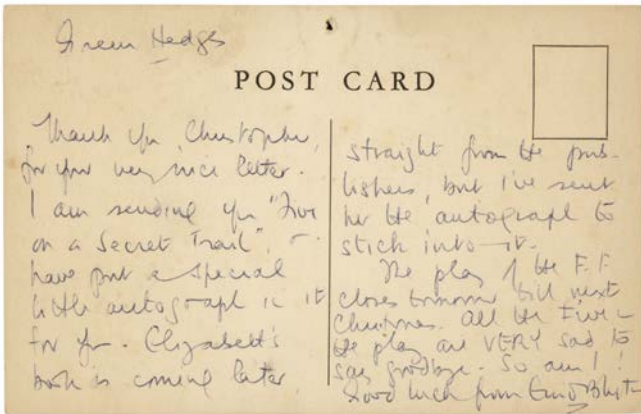 Green Hedges
POST CARD
Thank you, Christopher,
for your very nice letter.
I am sending you "Five
on a Secret Trail", &
have put a special
little autograph in it
for you. Elizabeth's
book is coming later,
straight from the pub-
lishers, but I've sent
her the autograph to
stick into it.
The play of the F.F.
closes tomorrow till next
Christmas. All the Five in
the play are VERY sad to
say goodbye. So am I!
Good luck from Enid Blyton